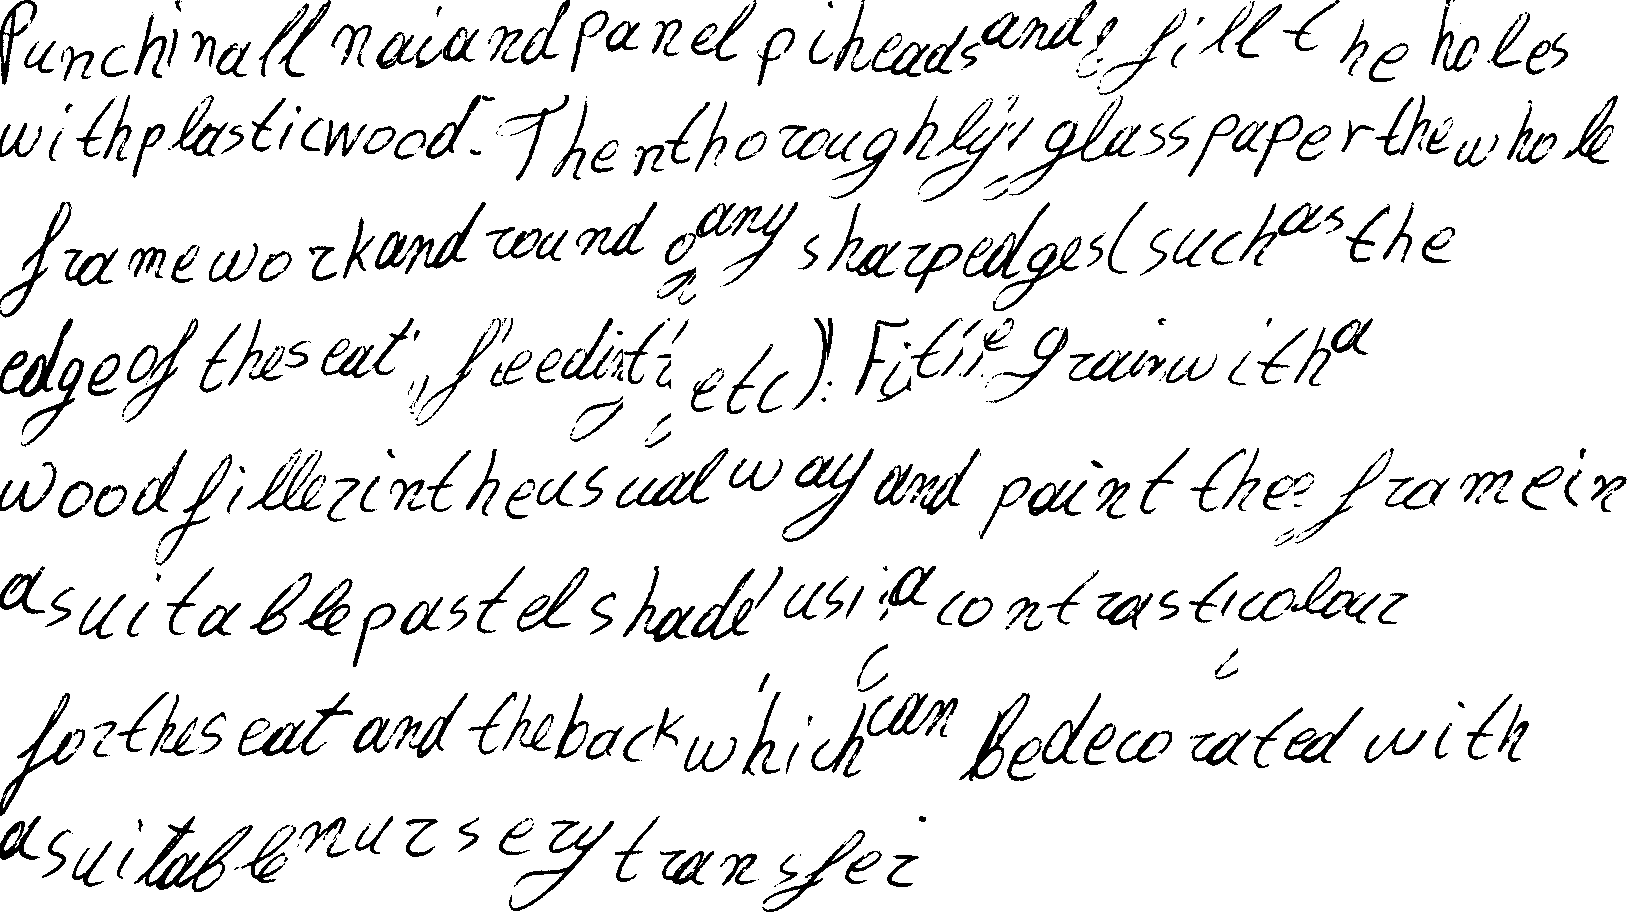 Punch in all nai and panel pi heads and fill the holes
with plastic wood. Then thoroughly glasspaper the whole
framework and round any sharp edges (such as the
edge of the seat, feeding etc). Fi the grain with a
wood filler in the usual way and paint the frame in
a suitable pastel shade usi a contrast colour
for the seat and the back which can be decorated with
a suitable nursery transfer